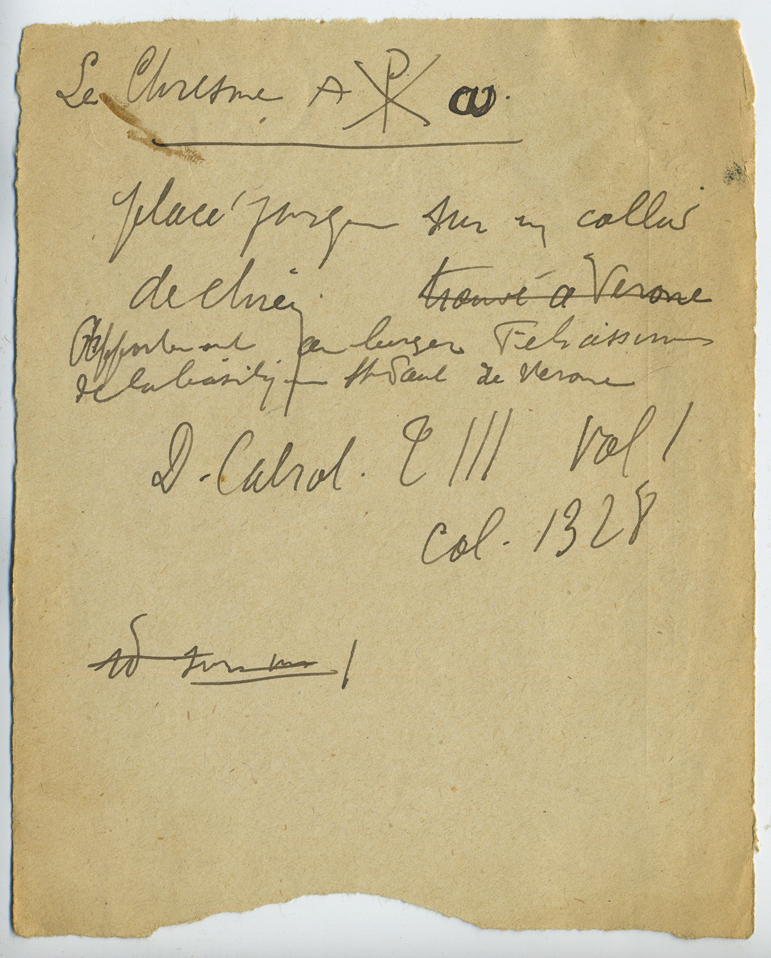 Le Chrisme A ☧ ω.
placé jusque sur un collier
de chien trouvé a Verone
Appartenant au berger Felicissimus
de la basilique St Paul de Verone
D. Cabrol. T III Vol 1
Col. 1328